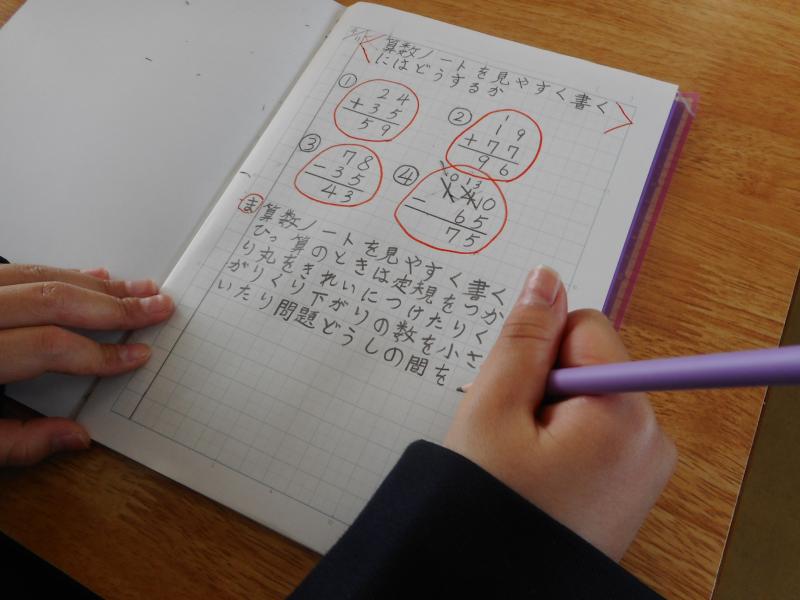 算数ノートを見やすく書く
にはどうするか
①
24
+35
59
②
1
19
+77
96
③
78
-35
43
④
0 13
140
- 65
75
ま
算数ノートを見やすく書く
ひっ算のときは定規をつか
り丸をきれいにつけたりく
がりくり下がりの数を小さ
いたり問題どうしの間を